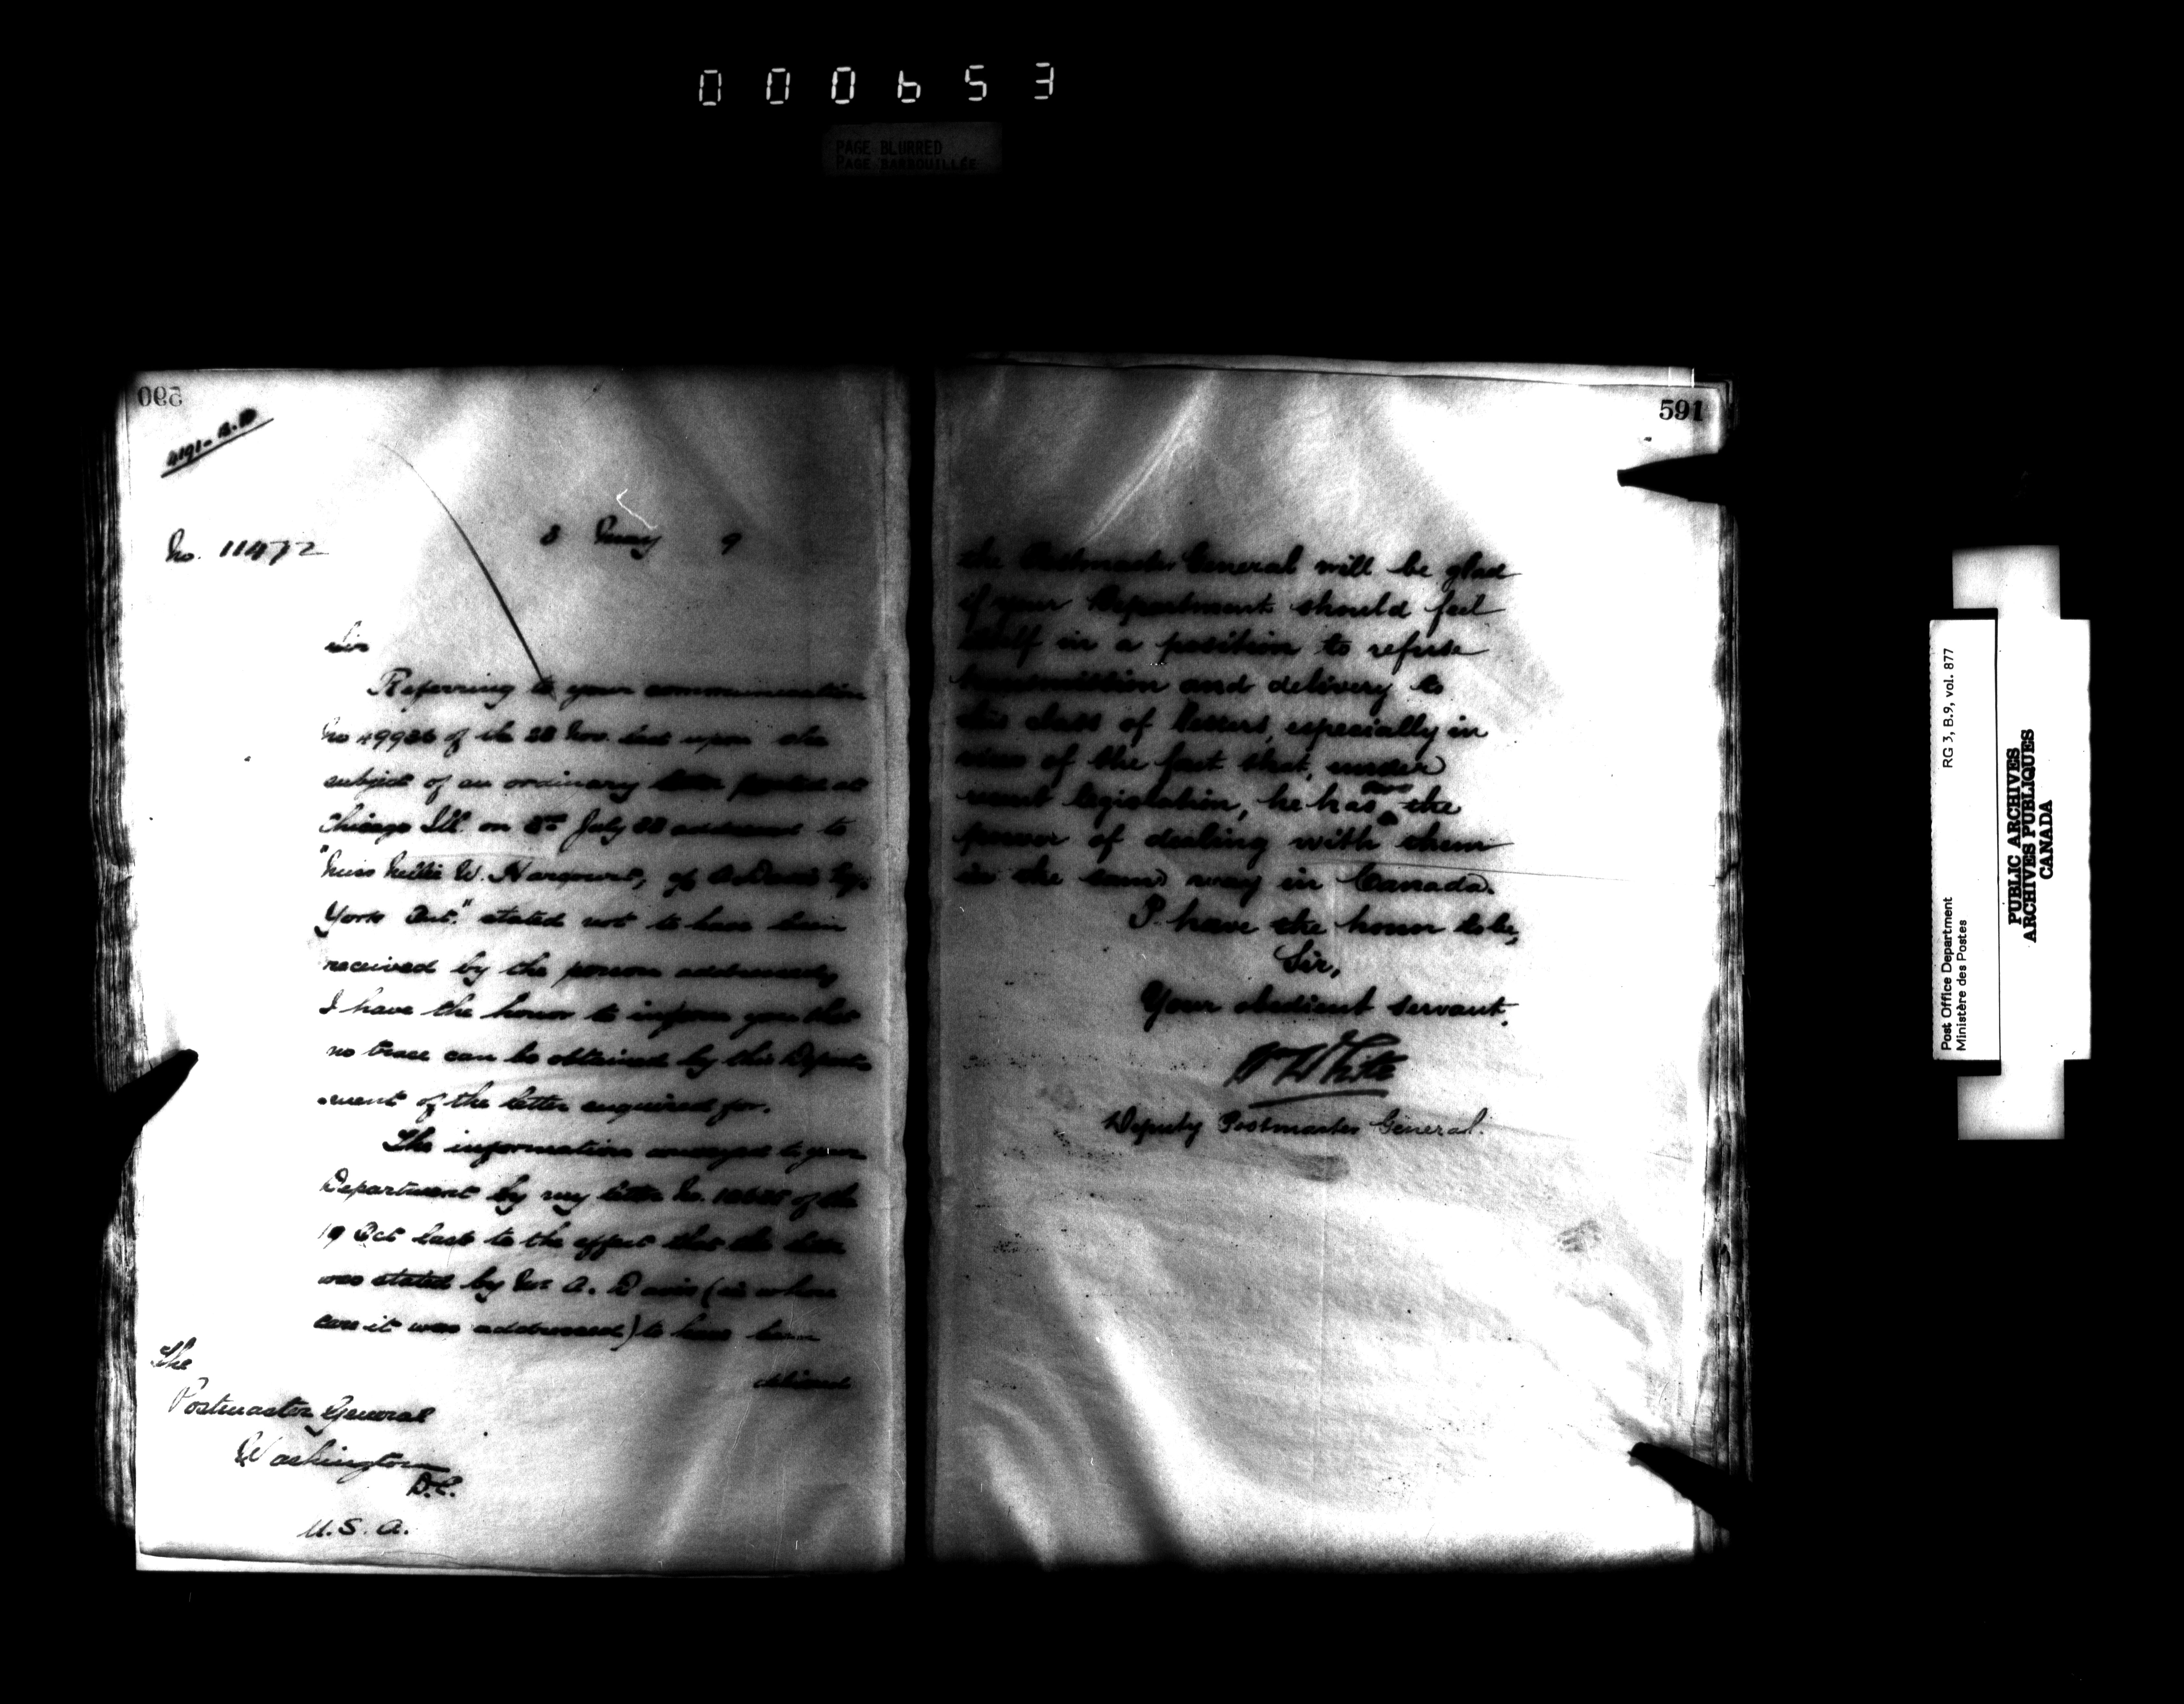 000653
PAGE BLURRED
PAGE BARBOUILLÉE
590
4191-B.D
No. 11472
8 Jany 9
Sir
Referring to your communication
No of the 28 Nov. last upon the
subject of an ordinary letter posted at
Chicago Ill. on July 88 addressed to
"Miss Nellie W. Harcourt, of A. Davis
York Ont." stated not to have been
received by the person addressed,
I have the honor to inform you that
no trace can be obtained by this Depart-
-ment of the letter enquired for.
The information conveyed to your
Department by my letter No. of the
19 Oct last to the effect that the letter
was stated by Mr. A. Davis (in whose
care it was addressed) to have been
The
Postmaster General
Washington
D.C.
U.S.A.
591
the Postmaster General will be glad
if your Department should feel
itself in a position to refuse
transmission and delivery to
this class of letters, especially in
view of the fact that, under
recent legislation, he has now the
power of dealing with them
in the same way in Canada.
I have the honor to be,
Sir,
Your obedient servant.
Wm White
Deputy Postmaster General.
Post Office Department
Ministère des Postes
RG 3, B.9, vol. 877
PUBLIC ARCHIVES
ARCHIVES PUBLIQUES
CANADA